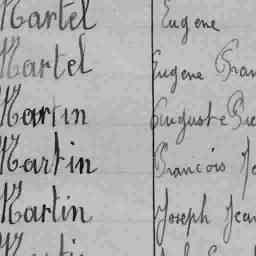 Martel Eugene
Martel Eugene Fran
Martin Auguste Pie
Martin Francois Je
Martin Joseph Jean
Martin